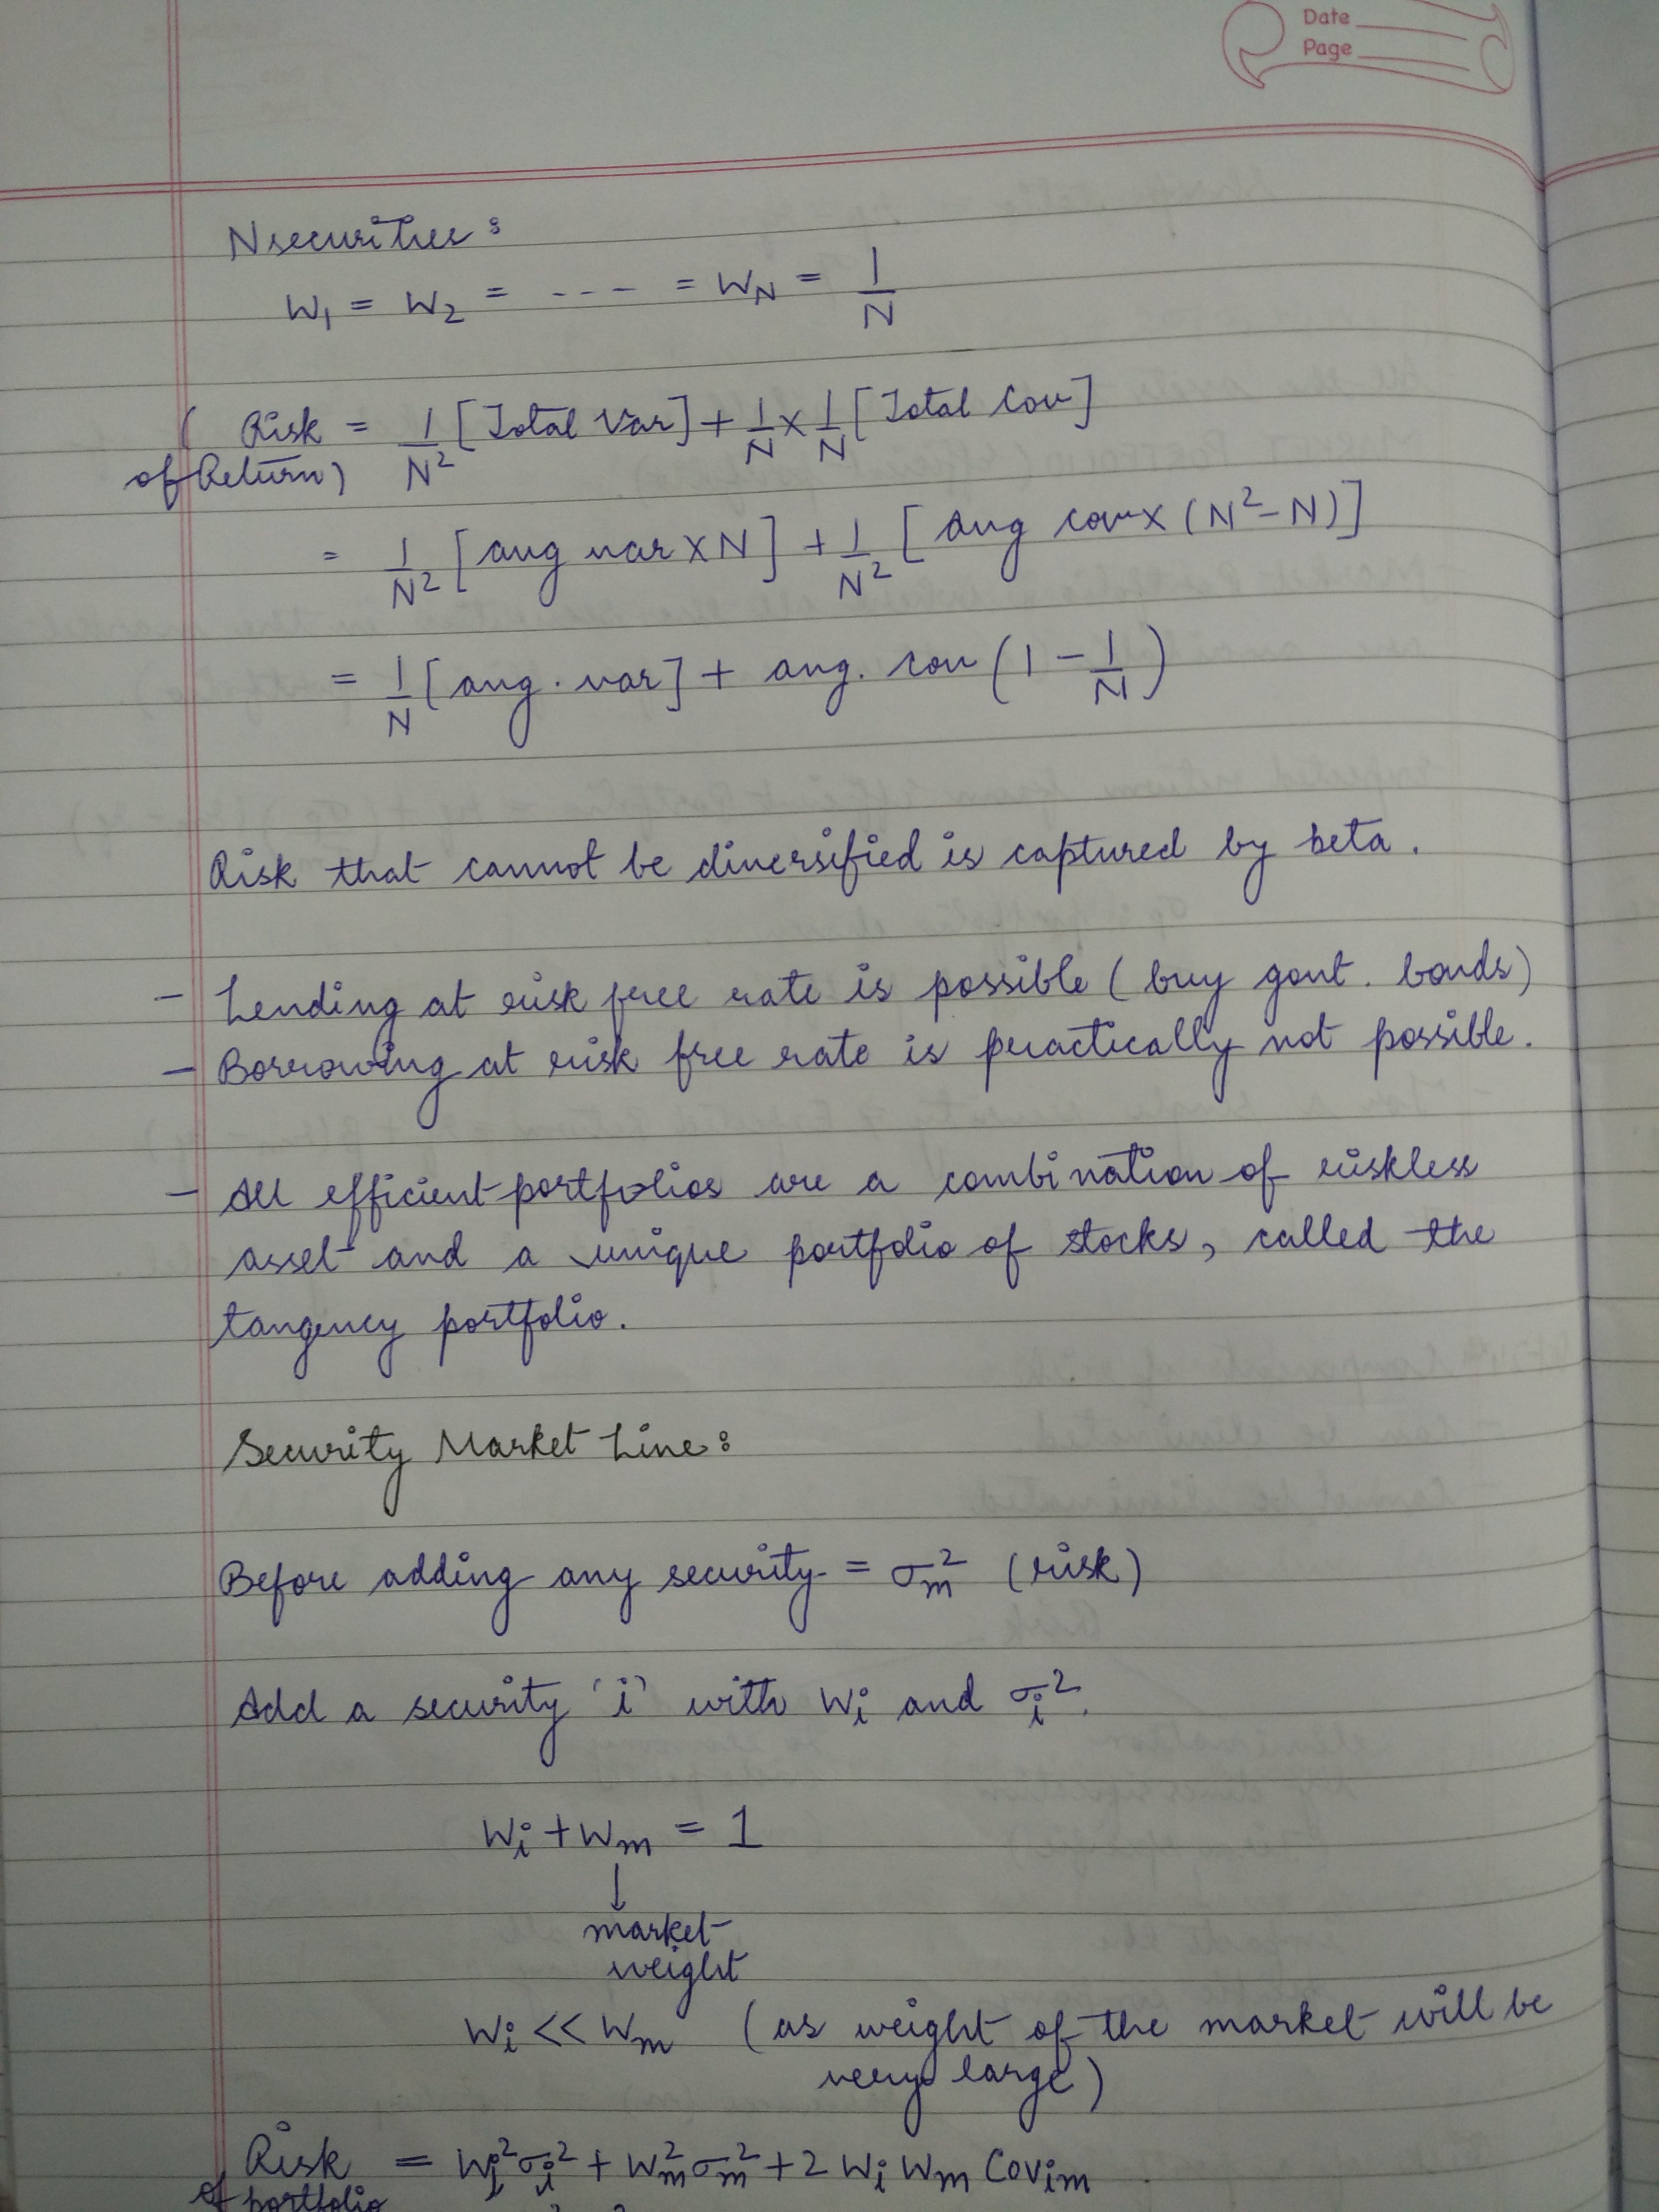 Date
Page
N securities :
W₁ = W₂ = ---- = W_N = 1/N
( Risk = 1/N² [Total Var] + 1/N × 1/N [Total Cov]
of Return)
= 1/N² [avg var × N] + 1/N² [avg cov × (N² - N)]
= 1/N [avg. var] + avg. cov (1 - 1/N)
Risk that cannot be diversified is captured by beta.
- Lending at risk free rate is possible ( buy govt. bonds)
- Borrowing at risk free rate is practically not possible.
- All efficient portfolios are a combination of riskless
asset and a unique portfolio of stocks, called the
tangency portfolio.
Security Market Line :
Before adding any security = σ_m² (risk)
Add a security 'i' with W_i and σ_i².
W_i + W_m = 1
↓
market
weight
W_i << W_m (as weight of the market will be
very large)
Risk = W_i² σ_i² + W_m² σ_m² + 2 W_i W_m Cov_im
of portfolio